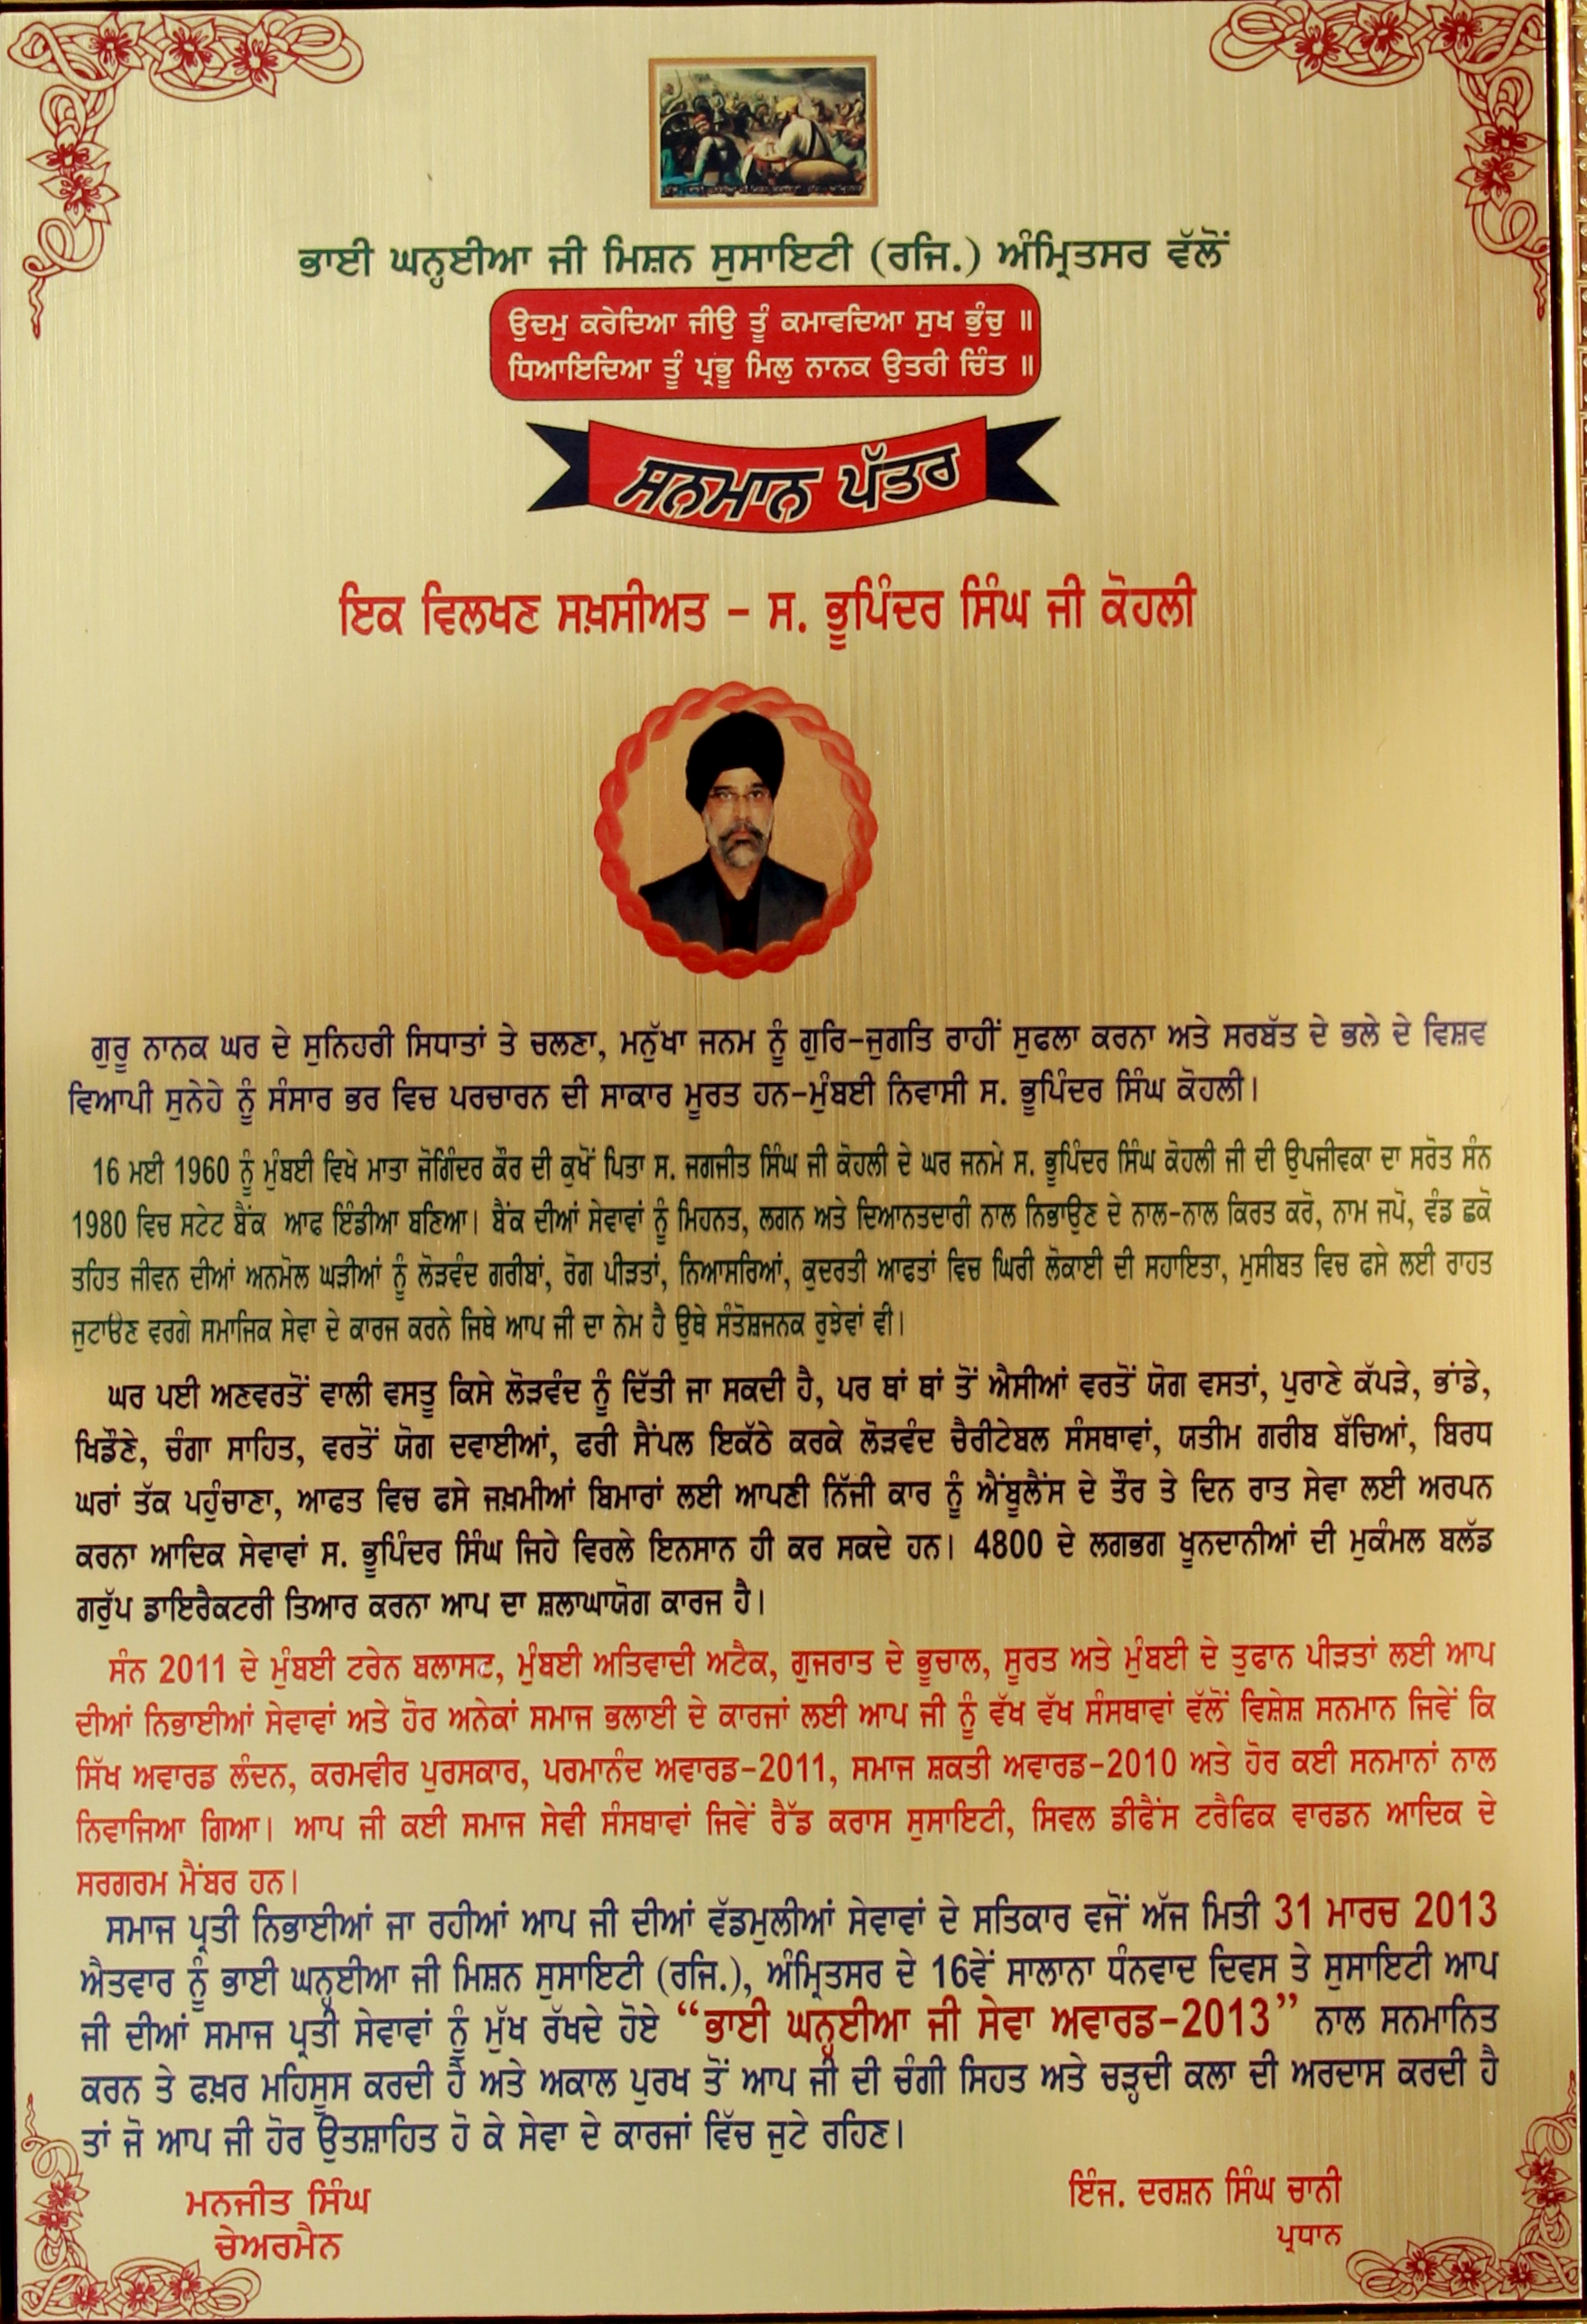 ਭਾਈ ਘਨ੍ਹਈਆ ਜੀ ਮਿਸ਼ਨ ਸੁਸਾਇਟੀ (ਰਜਿ.) ਅੰਮ੍ਰਿਤਸਰ ਵੱਲੋਂ
ਉਦਮੁ ਕਰੇਦਿਆ ਜੀਉ ਤੂੰ ਕਮਾਵਦਿਆ ਸੁਖ ਭੁੰਚੁ ॥
ਧਿਆਇਦਿਆ ਤੂੰ ਪ੍ਰਭੂ ਮਿਲੁ ਨਾਨਕ ਉਤਰੀ ਚਿੰਤ ॥
ਸਨਮਾਨ ਪੱਤਰ
ਇਕ ਵਿਲਖਣ ਸਖ਼ਸੀਅਤ - ਸ. ਭੂਪਿੰਦਰ ਸਿੰਘ ਜੀ ਕੋਹਲੀ
ਗੁਰੂ ਨਾਨਕ ਘਰ ਦੇ ਸੁਨਿਹਰੀ ਸਿਧਾਤਾਂ ਤੇ ਚਲਣਾ, ਮਨੁੱਖਾ ਜਨਮ ਨੂੰ ਗੁਰਿ-ਜੁਗਤਿ ਰਾਹੀਂ ਸੁਫਲਾ ਕਰਨਾ ਅਤੇ ਸਰਬੱਤ ਦੇ ਭਲੇ ਦੇ ਵਿਸ਼ਵ
ਵਿਆਪੀ ਸੁਨੇਹੇ ਨੂੰ ਸੰਸਾਰ ਭਰ ਵਿਚ ਪਰਚਾਰਨ ਦੀ ਸਾਕਾਰ ਮੂਰਤ ਹਨ-ਮੁੰਬਈ ਨਿਵਾਸੀ ਸ. ਭੂਪਿੰਦਰ ਸਿੰਘ ਕੋਹਲੀ।
16 ਮਈ 1960 ਨੂੰ ਮੁੰਬਈ ਵਿਖੇ ਮਾਤਾ ਜੋਗਿੰਦਰ ਕੌਰ ਦੀ ਕੁਖੋਂ ਪਿਤਾ ਸ. ਜਗਜੀਤ ਸਿੰਘ ਜੀ ਕੋਹਲੀ ਦੇ ਘਰ ਜਨਮੇ ਸ. ਭੂਪਿੰਦਰ ਸਿੰਘ ਕੋਹਲੀ ਜੀ ਦੀ ਉਪਜੀਵਕਾ ਦਾ ਸਰੋਤ ਸੰਨ
1980 ਵਿਚ ਸਟੇਟ ਬੈਂਕ ਆਫ ਇੰਡੀਆ ਬਣਿਆ। ਬੈਂਕ ਦੀਆਂ ਸੇਵਾਵਾਂ ਨੂੰ ਮਿਹਨਤ, ਲਗਨ ਅਤੇ ਦਿਆਨਤਦਾਰੀ ਨਾਲ ਨਿਭਾਉਣ ਦੇ ਨਾਲ-ਨਾਲ ਕਿਰਤ ਕਰੋ, ਨਾਮ ਜਪੋ, ਵੰਡ ਛਕੋ
ਤਹਿਤ ਜੀਵਨ ਦੀਆਂ ਅਨਮੋਲ ਘੜੀਆਂ ਨੂੰ ਲੋੜਵੰਦ ਗਰੀਬਾਂ, ਰੋਗ ਪੀੜਤਾਂ, ਨਿਆਸਰਿਆਂ, ਕੁਦਰਤੀ ਆਫਤਾਂ ਵਿਚ ਘਿਰੀ ਲੋਕਾਈ ਦੀ ਸਹਾਇਤਾ, ਮੁਸੀਬਤ ਵਿਚ ਫਸੇ ਲਈ ਰਾਹਤ
ਜੁਟਾਉਣ ਵਰਗੇ ਸਮਾਜਿਕ ਸੇਵਾ ਦੇ ਕਾਰਜ ਕਰਨੇ ਜਿਥੇ ਆਪ ਜੀ ਦਾ ਨੇਮ ਹੈ ਉਥੇ ਸੰਤੋਸ਼ਜਨਕ ਰੁਝੇਵਾਂ ਵੀ।
ਘਰ ਪਈ ਅਣਵਰਤੋਂ ਵਾਲੀ ਵਸਤੂ ਕਿਸੇ ਲੋੜਵੰਦ ਨੂੰ ਦਿੱਤੀ ਜਾ ਸਕਦੀ ਹੈ, ਪਰ ਥਾਂ ਥਾਂ ਤੋਂ ਐਸੀਆਂ ਵਰਤੋਂ ਯੋਗ ਵਸਤਾਂ, ਪੁਰਾਣੇ ਕੱਪੜੇ, ਭਾਂਡੇ,
ਖਿਡੌਣੇ, ਚੰਗਾ ਸਾਹਿਤ, ਵਰਤੋਂ ਯੋਗ ਦਵਾਈਆਂ, ਫਰੀ ਸੈਂਪਲ ਇਕੱਠੇ ਕਰਕੇ ਲੋੜਵੰਦ ਚੈਰੀਟੇਬਲ ਸੰਸਥਾਵਾਂ, ਯਤੀਮ ਗਰੀਬ ਬੱਚਿਆਂ, ਬਿਰਧ
ਘਰਾਂ ਤੱਕ ਪਹੁੰਚਾਣਾ, ਆਫਤ ਵਿਚ ਫਸੇ ਜਖ਼ਮੀਆਂ ਬਿਮਾਰਾਂ ਲਈ ਆਪਣੀ ਨਿੱਜੀ ਕਾਰ ਨੂੰ ਐਂਬੂਲੈਂਸ ਦੇ ਤੌਰ ਤੇ ਦਿਨ ਰਾਤ ਸੇਵਾ ਲਈ ਅਰਪਨ
ਕਰਨਾ ਆਦਿਕ ਸੇਵਾਵਾਂ ਸ. ਭੂਪਿੰਦਰ ਸਿੰਘ ਜਿਹੇ ਵਿਰਲੇ ਇਨਸਾਨ ਹੀ ਕਰ ਸਕਦੇ ਹਨ। 4800 ਦੇ ਲਗਭਗ ਖੂਨਦਾਨੀਆਂ ਦੀ ਮੁਕੰਮਲ ਬਲੱਡ
ਗਰੁੱਪ ਡਾਇਰੈਕਟਰੀ ਤਿਆਰ ਕਰਨਾ ਆਪ ਦਾ ਸ਼ਲਾਘਾਯੋਗ ਕਾਰਜ ਹੈ।
ਸੰਨ 2011 ਦੇ ਮੁੰਬਈ ਟਰੇਨ ਬਲਾਸਟ, ਮੁੰਬਈ ਅਤਿਵਾਦੀ ਅਟੈਕ, ਗੁਜਰਾਤ ਦੇ ਭੂਚਾਲ, ਸੂਰਤ ਅਤੇ ਮੁੰਬਈ ਦੇ ਤੁਫਾਨ ਪੀੜਤਾਂ ਲਈ ਆਪ
ਦੀਆਂ ਨਿਭਾਈਆਂ ਸੇਵਾਵਾਂ ਅਤੇ ਹੋਰ ਅਨੇਕਾਂ ਸਮਾਜ ਭਲਾਈ ਦੇ ਕਾਰਜਾਂ ਲਈ ਆਪ ਜੀ ਨੂੰ ਵੱਖ ਵੱਖ ਸੰਸਥਾਵਾਂ ਵੱਲੋਂ ਵਿਸ਼ੇਸ਼ ਸਨਮਾਨ ਜਿਵੇਂ ਕਿ
ਸਿੱਖ ਅਵਾਰਡ ਲੰਦਨ, ਕਰਮਵੀਰ ਪੁਰਸਕਾਰ, ਪਰਮਾਨੰਦ ਅਵਾਰਡ-2011, ਸਮਾਜ ਸ਼ਕਤੀ ਅਵਾਰਡ-2010 ਅਤੇ ਹੋਰ ਕਈ ਸਨਮਾਨਾਂ ਨਾਲ
ਨਿਵਾਜਿਆ ਗਿਆ। ਆਪ ਜੀ ਕਈ ਸਮਾਜ ਸੇਵੀ ਸੰਸਥਾਵਾਂ ਜਿਵੇਂ ਰੈੱਡ ਕਰਾਸ ਸੁਸਾਇਟੀ, ਸਿਵਲ ਡੀਫੈਂਸ ਟਰੈਫਿਕ ਵਾਰਡਨ ਆਦਿਕ ਦੇ
ਸਰਗਰਮ ਮੈਂਬਰ ਹਨ।
ਸਮਾਜ ਪ੍ਰਤੀ ਨਿਭਾਈਆਂ ਜਾ ਰਹੀਆਂ ਆਪ ਜੀ ਦੀਆਂ ਵੱਡਮੁਲੀਆਂ ਸੇਵਾਵਾਂ ਦੇ ਸਤਿਕਾਰ ਵਜੋਂ ਅੱਜ ਮਿਤੀ 31 ਮਾਰਚ 2013
ਐਤਵਾਰ ਨੂੰ ਭਾਈ ਘਨ੍ਹਈਆ ਜੀ ਮਿਸ਼ਨ ਸੁਸਾਇਟੀ (ਰਜਿ.), ਅੰਮ੍ਰਿਤਸਰ ਦੇ 16ਵੇਂ ਸਾਲਾਨਾ ਧੰਨਵਾਦ ਦਿਵਸ ਤੇ ਸੁਸਾਇਟੀ ਆਪ
ਜੀ ਦੀਆਂ ਸਮਾਜ ਪ੍ਰਤੀ ਸੇਵਾਵਾਂ ਨੂੰ ਮੁੱਖ ਰੱਖਦੇ ਹੋਏ “ਭਾਈ ਘਨ੍ਹਈਆ ਜੀ ਸੇਵਾ ਅਵਾਰਡ-2013” ਨਾਲ ਸਨਮਾਨਿਤ
ਕਰਨ ਤੇ ਫਖ਼ਰ ਮਹਿਸੂਸ ਕਰਦੀ ਹੈ ਅਤੇ ਅਕਾਲ ਪੁਰਖ ਤੋਂ ਆਪ ਜੀ ਦੀ ਚੰਗੀ ਸਿਹਤ ਅਤੇ ਚੜ੍ਹਦੀ ਕਲਾ ਦੀ ਅਰਦਾਸ ਕਰਦੀ ਹੈ
ਤਾਂ ਜੋ ਆਪ ਜੀ ਹੋਰ ਉਤਸ਼ਾਹਿਤ ਹੋ ਕੇ ਸੇਵਾ ਦੇ ਕਾਰਜਾਂ ਵਿੱਚ ਜੁਟੇ ਰਹਿਣ।
ਮਨਜੀਤ ਸਿੰਘ
ਚੇਅਰਮੈਨ
ਇੰਜ. ਦਰਸ਼ਨ ਸਿੰਘ ਚਾਨੀ
ਪ੍ਰਧਾਨ